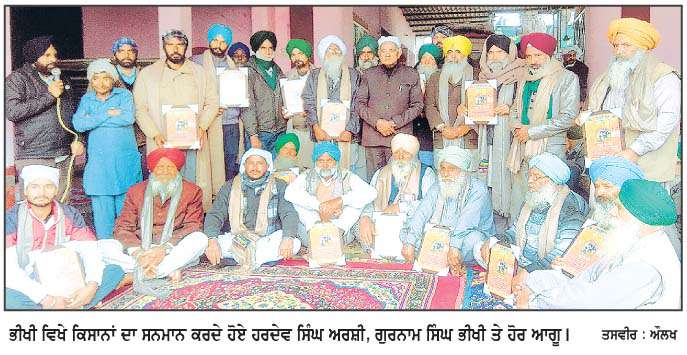 ਭੀਖੀ ਵਿਖੇ ਕਿਸਾਨਾਂ ਦਾ ਸਨਮਾਨ ਕਰਦੇ ਹੋਏ ਹਰਦੇਵ ਸਿੰਘ ਅਰਸ਼ੀ, ਗੁਰਨਾਮ ਸਿੰਘ ਭੀਖੀ ਤੇ ਹੋਰ ਆਗੂ। ਤਸਵੀਰ : ਔਲਖ